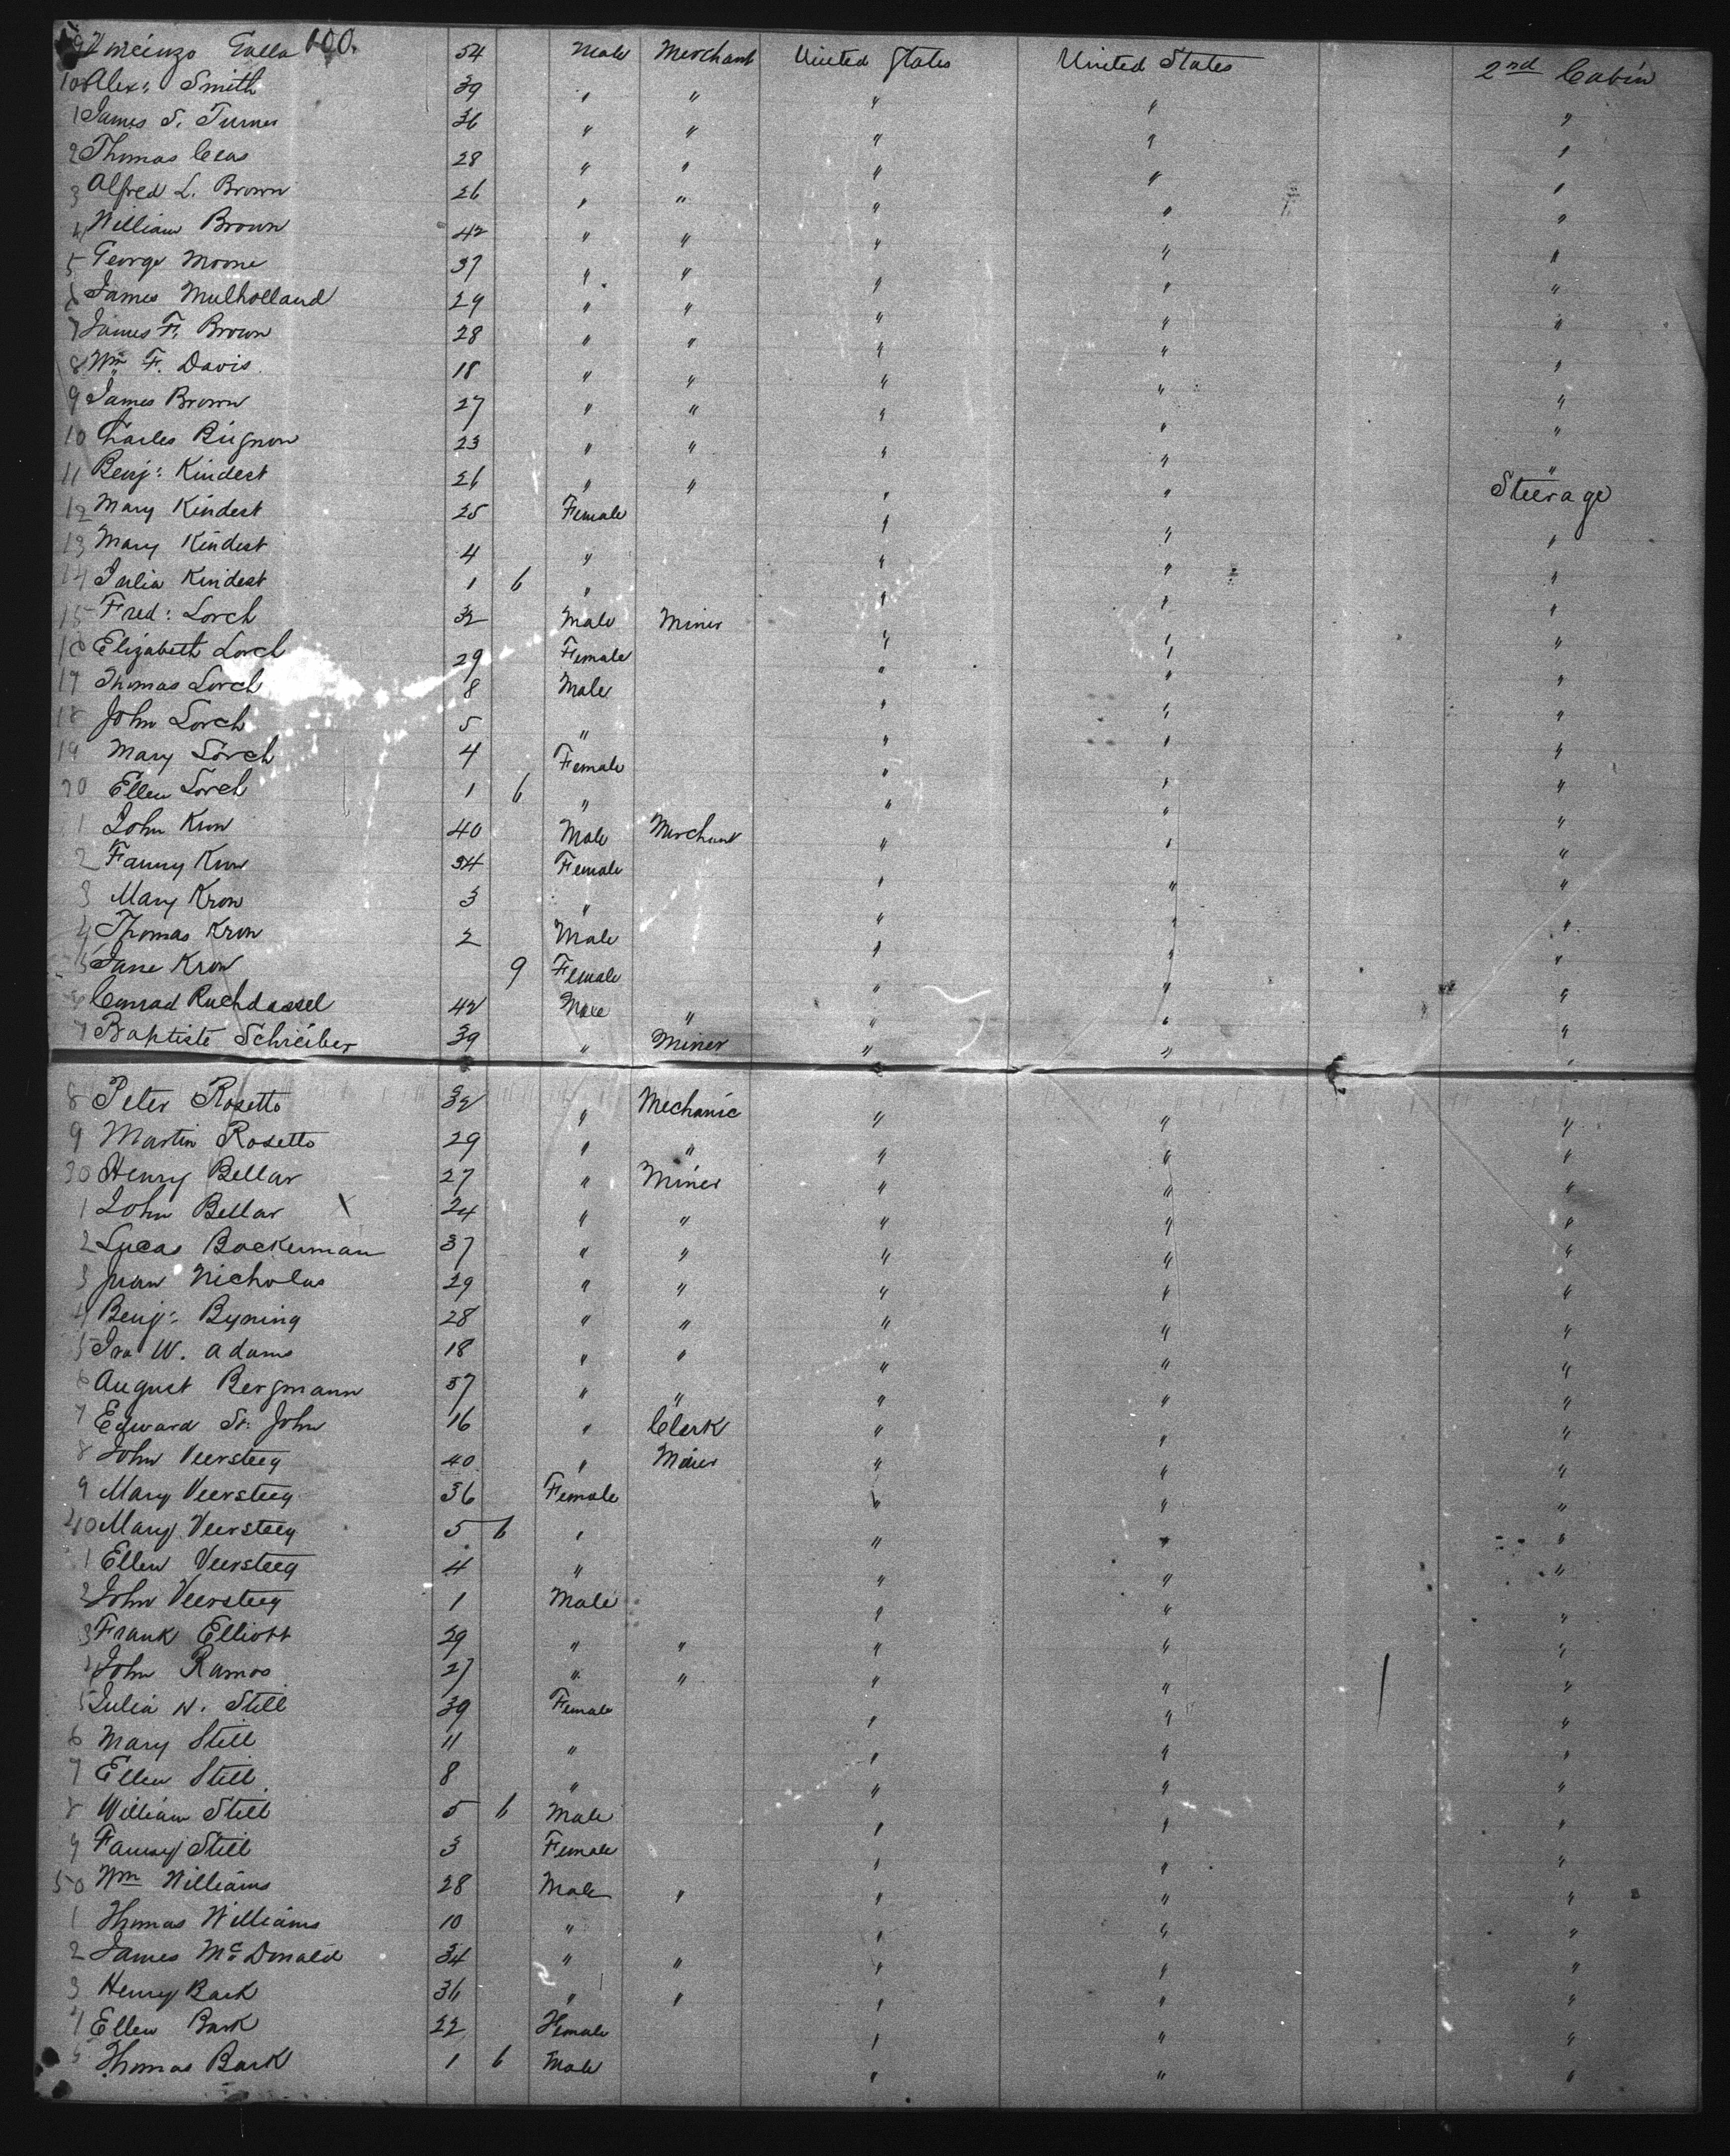 9 Vincinzo Galla 100. 54 Male Merchant United States United States 2nd Cabin
100 Alex: Smith 39 " " " " "
1 James S. Turner 36 " " " " "
2 Thomas Ceas 28 " " " " "
3 Alfred L. Brown 26 " " " " "
4 William Brown 42 " " " " "
5 George Moore 37 " " " " "
6 James Mulholland 29 " " " " "
7 James F. Brown 28 " " " " "
8 Wm F. Davis 18 " " " " "
9 James Brown 27 " " " " "
10 Charles Bignon 23 " " " " "
11 Benj: Kindest 26 " " " " Steerage
12 Mary Kindest 25 Female " " "
13 Mary Kindest 4 " " " "
14 Julia Kindest 1 6 " " " "
15 Fred: Lorch 32 Male Miner " " "
16 Elizabeth Lorch 29 Female " " "
17 Thomas Lorch 8 Male " " "
18 John Lorch 5 " " " "
19 Mary Lorch 4 Female " " "
20 Ellen Lorch 1 6 " " " "
1 John Kron 40 Male Merchant " " "
2 Fanny Kron 34 Female " " "
3 Mary Kron 3 " " " "
4 Thomas Kron 2 Male " " "
5 Jane Kron 9 Female " " "
6 Conrad Ruchdassel 42 Male " " " "
7 Baptiste Schreiber 39 " Miner " " "
8 Peter Rosetto 32 " Mechanic " " "
9 Martin Rosetto 29 " " " " "
30 Henry Bellar 27 " Miner " " "
1 John Bellar X 24 " " " " "
2 Lucas Bockerman 37 " " " " "
3 Juan Nicholas 29 " " " " "
4 Benj: Byning 28 " " " " "
5 Ira W. Adams 18 " " " " "
6 August Bergmann 37 " " " " "
7 Edward St. John 16 " Clerk " " "
8 John Veersteeg 40 " Miner " " "
9 Mary Veersteeg 36 Female " " "
40 Mary Veersteeg 5 6 " " " "
1 Ellen Veersteeg 4 " " " "
2 John Veersteeg 1 Male " " "
3 Frank Elliott 29 " " " " "
4 John Ramos 27 " " " " "
5 Julia N. Still 39 Female " " "
6 Mary Still 11 " " " "
7 Ellen Still 8 " " " "
8 William Still 5 6 Male " " "
9 Fanny Still 3 Female " " "
50 Wm Williams 28 Male " " " "
1 Thomas Williams 10 " " " "
2 James McDonald 34 " " " " "
3 Henry Bark 36 " " " " "
4 Ellen Bark 22 Female " " "
5 Thomas Bark 1 6 Male " " "